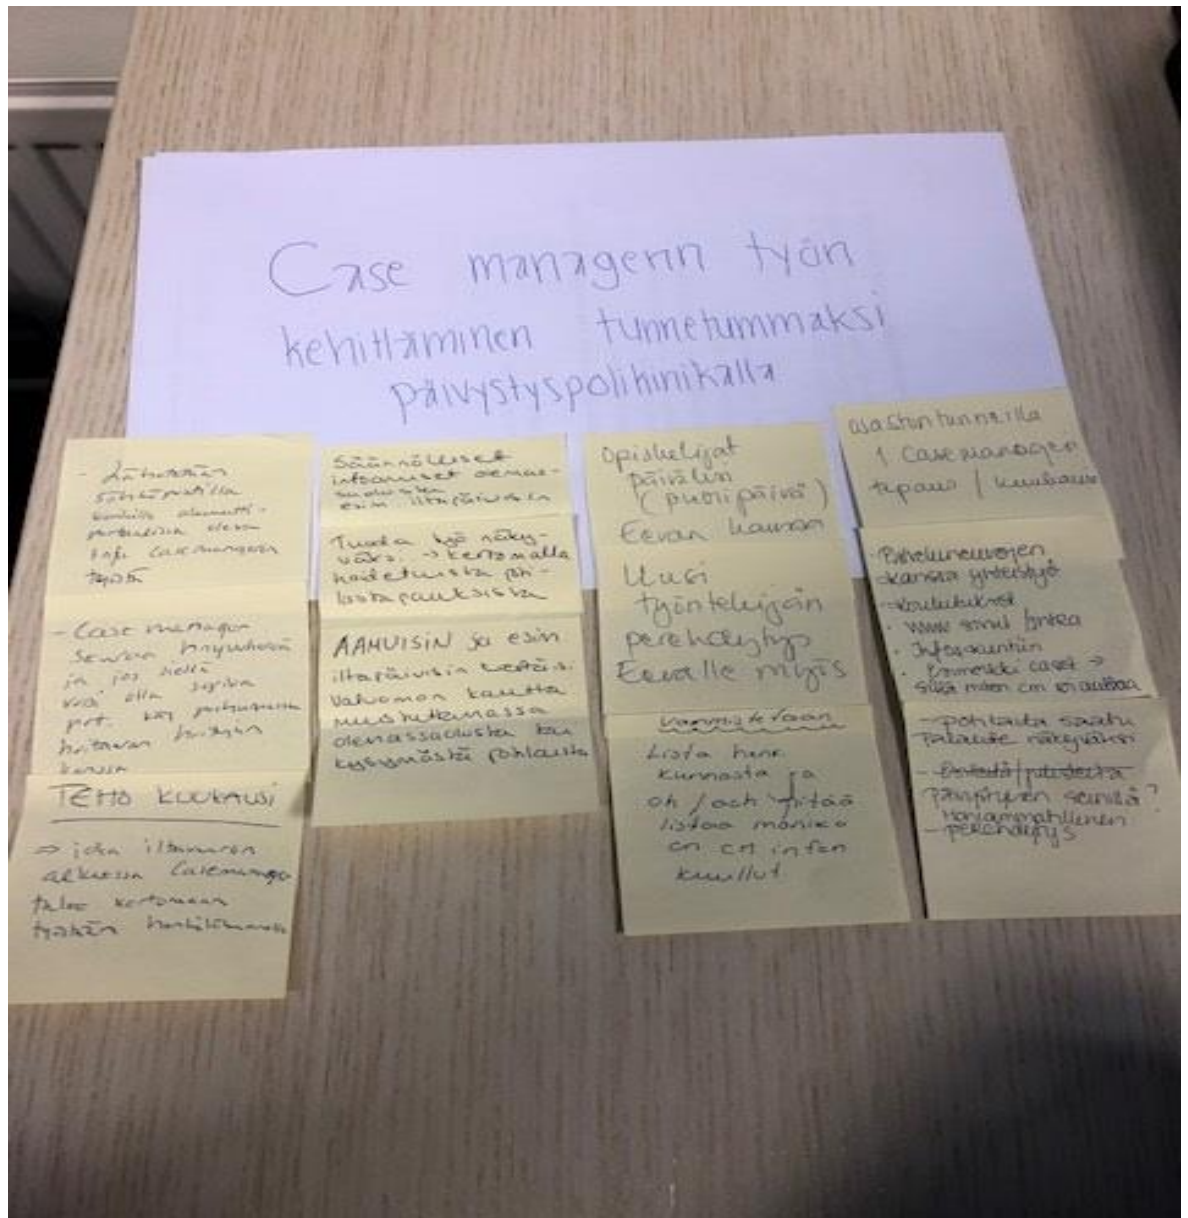 Case managerin työn
kehittäminen tunnetummaksi
päivystyspoliklinikalla
- Lähetetään
sähköpostilla
kaikille
info Casemanagerin
työstä
- Case manager
seuraa
ja jos siellä
voisi olla sopiva
pot. käy
hoitavan hoitajan
kanssa
TEHO KUUKAUSI
⇒ joka iltavuoron
alkuessa Casemanager
tulee kertomaan
työstään
Säännölliset
infoamiset olemas-
saolosta
esim. iltapäivisin
Tuoda työ näky-
väksi → kertomalla
hoidetuista poti-
lastapauksista
AAMUISIN ja esim
iltapäivisin
valvomon kautta
muistuttamassa
olemassaolosta tai
kysymästä potilaista
Opiskelijat
päiväksi
(puoli päivä)
Eevan kanssa
Uusi
työntekijän
perehdytys
Eevalle myös
Varmistetaan
Lista henk
kunnasta ja
oh / aoh pitää
listaa moniko
on cm infon
kuullut
osastontunneilla
1 Casemanager
tapaus / kuukausi
- Palveluneuvojen
kanssa yhteistyö
- koulutukset
• www sivut Intra
• Infoskantiin
• Esimerkki caset →
siitä miten cm voi auttaa
- potilailta saatu
palaute näkyväksi
- päivystyksen seinillä?
Moniammatillinen
- perehdytys